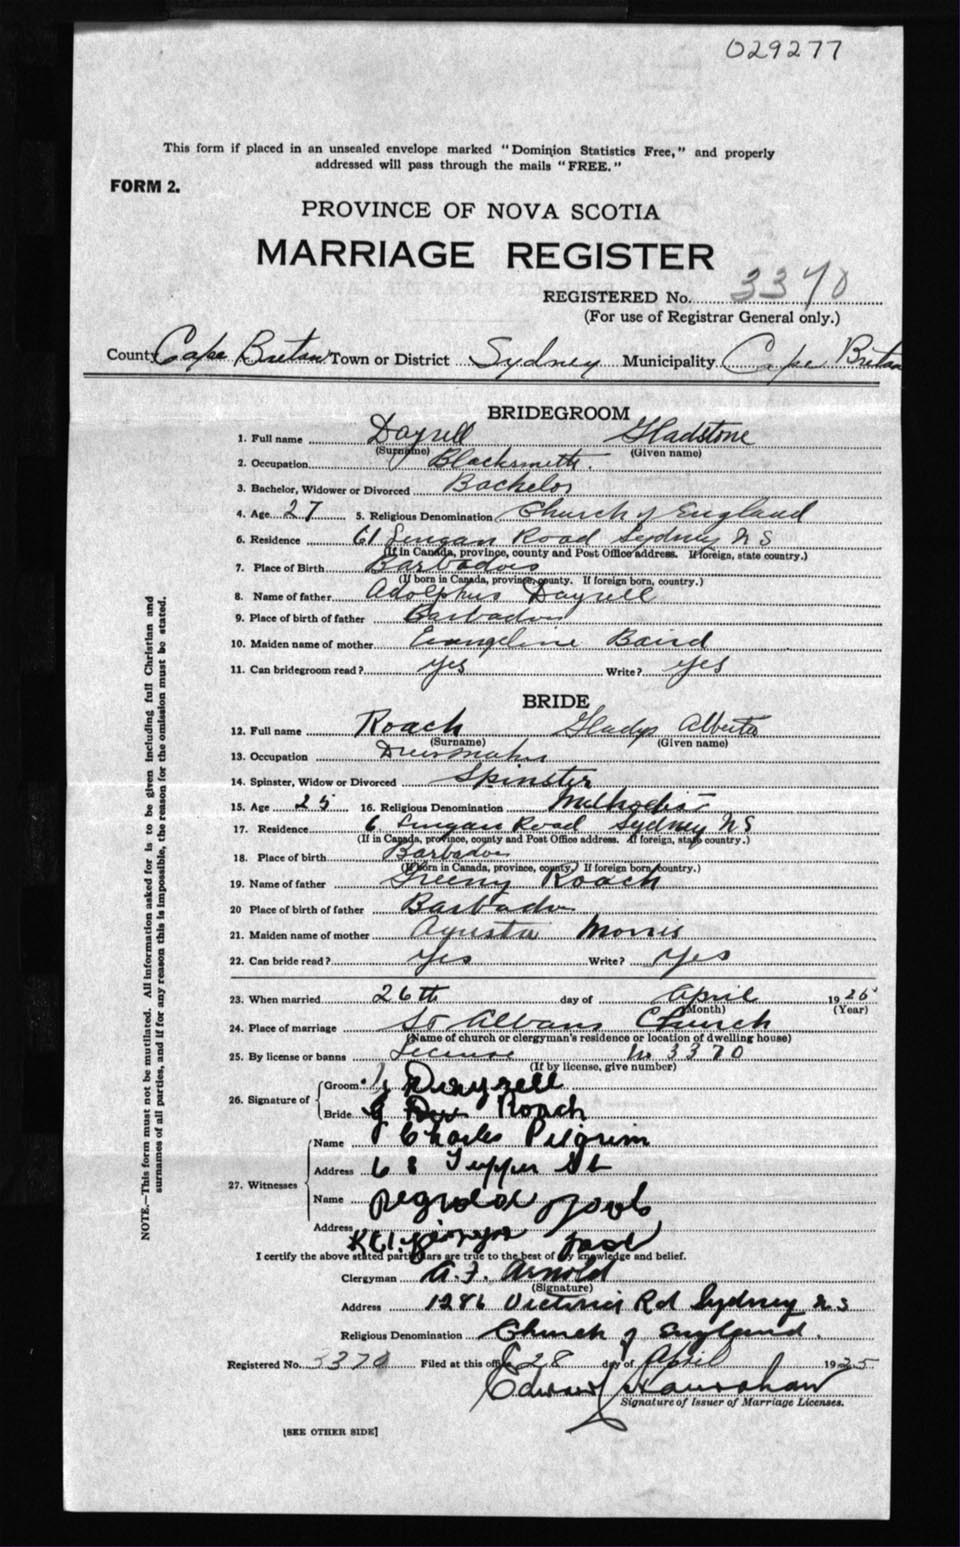 029277
This form if placed in an unsealed envelope marked "Dominion Statistics Free," and properly
addressed will pass through the mails "FREE."
FORM 2.
PROVINCE OF NOVA SCOTIA
MARRIAGE REGISTER
REGISTERED No. 3370
(For use of Registrar General only.)
County Cape Breton Town or District Sydney Municipality Cape Breton
BRIDEGROOM
1. Full name Dayrell Gladstone
(Surname) (Given name)
2. Occupation Blacksmith.
3. Bachelor, Widower or Divorced Bachelor
4. Age 27 5. Religious Denomination Church of England
6. Residence 61 Lingan Road Sydney N S
(If in Canada, province, county and Post Office address. If foreign, state country.)
7. Place of Birth Barbados
(If born in Canada, province, county. If foreign born, country.)
8. Name of father Adolphus Dayrell
9. Place of birth of father Barbados
10. Maiden name of mother Evangeline Baird
11. Can bridegroom read? yes Write? yes
BRIDE
12. Full name Roach Gladys Alberta
(Surname) (Given name)
13. Occupation Dressmaker
14. Spinster, Widow or Divorced Spinster
15. Age 25 16. Religious Denomination Methodist
17. Residence 6 Lingan Road Sydney NS
(If in Canada, province, county and Post Office address. If foreign, state country.)
18. Place of birth Barbados
(If born in Canada, province, county. If foreign born, country.)
19. Name of father Roach
20 Place of birth of father Barbados
21. Maiden name of mother Agusta Morris
22. Can bride read? Yes Write? Yes
23. When married 26th day of April 1925
(Month) (Year)
24. Place of marriage St Albans Church
(Name of church or clergyman's residence or location of dwelling house)
25. By license or banns License No 3370
(If by license, give number)
26. Signature of Groom G Dayrell
Bride G Roach
27. Witnesses Name Charles Pilgrim
Address 68 Tupper St
Name
Address Road
I certify the above stated particulars are true to the best of my knowledge and belief.
Clergyman A. F. Arnold
(Signature)
Address 1286 Victoria Rd Sydney N.S
Religious Denomination Church of England.
Registered No. 3370 Filed at this office 28 day of April 1925
Edward
Signature of Issuer of Marriage Licenses.
[SEE OTHER SIDE]
NOTE.—This form must not be mutilated. All information asked for is to be given including full Christian and
surnames of all parties, and if for any reason this is impossible, the reason for the omission must be stated.